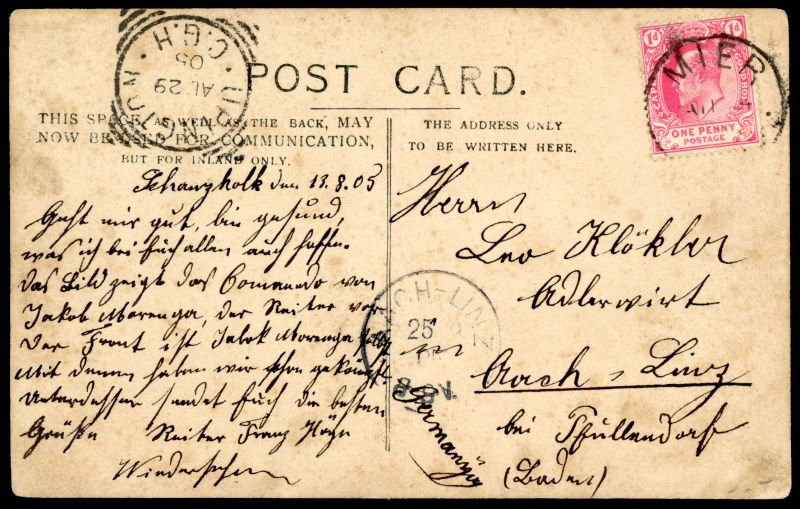 POST CARD.
THIS SPACE, AS WELL AS THE BACK, MAY
NOW BE USED FOR COMMUNICATION,
BUT FOR INLAND ONLY.
THE ADDRESS ONLY
TO BE WRITTEN HERE.
UPINGTON
C.G.H.
AU 29
05
MIER
AU
1d 1d
ONE PENNY
POSTAGE
den 13.8.05
Geht mir gut, bin gesund,
was ich bei Euch allen auch hoffe.
Das Bild zeigt das Comando von
Jakob Morenga, der Reiter vor
der Front ist Jakob Morenga selbst
Mit denen haben wir schon gekämpft.
Unterdessen sendet Euch die besten
Grüße Reiter Franz
Wiedersehen
Herrn
Leo Klökler
Adlerwirt
in
Aach-Linz
bei Pfullendorf
(Baden)
Germany
AACH-LINZ
25